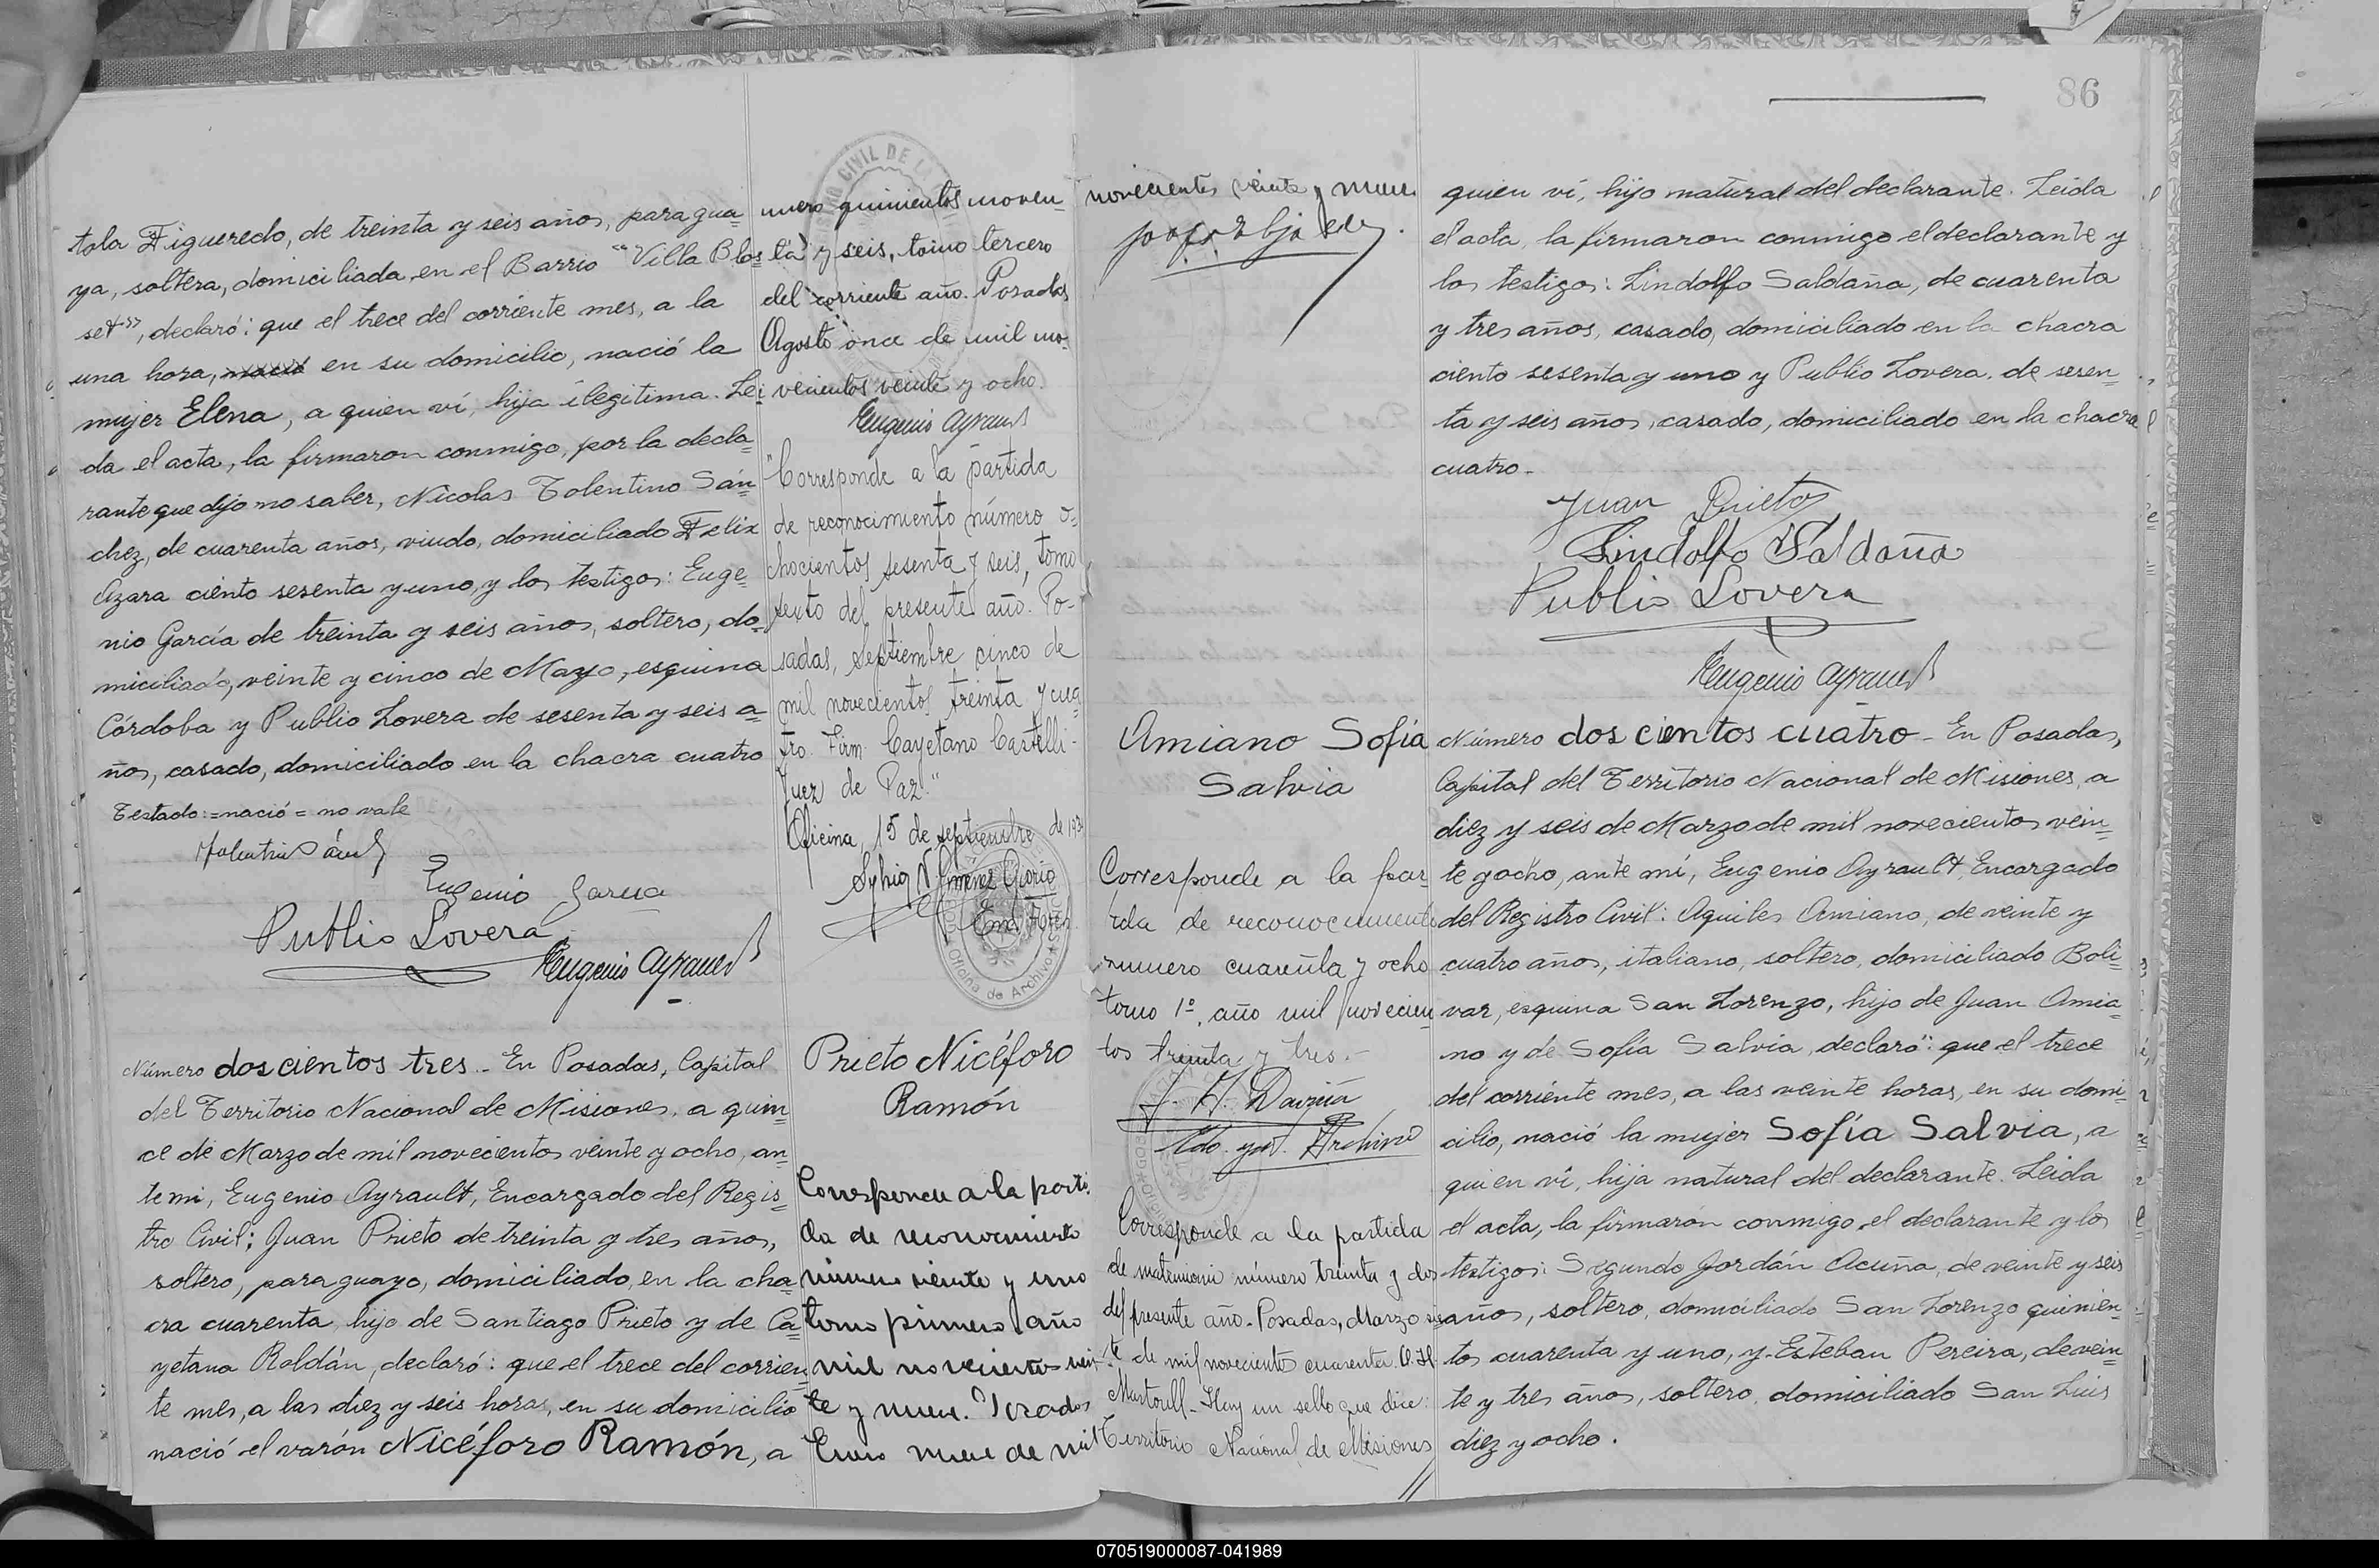 tola Figueredo, de treinta y seis años, paragua
ya, soltera, domiciliada, en el Barrio "Villa Blos
set", declaró: que el trece del corriente mes, a la
una hora, nació en su domicilio, nació la
mujer Elena, a quien ví, hija ilegitima. Lei
da el acta, la firmaron conmigo, por la decla=
rante que dijo no saber, Nicolas Tolentino Sán=
chez, de cuarenta años, viudo, domiciliado Felix
Azara ciento sesenta y uno, y los testigos: Euge=
nio García de treinta y seis años, soltero, do=
miciliado, veinte y cinco de Mayo, esquina
Córdoba y Publio Lovera de sesenta y seis a=
ños, casado, domiciliado en la chacra cuatro
Testado:=nació= no vale
Eugenio Garcia
Publio Lovera
Eugenio Ayrault
Número doscientos tres.- En Posadas, Capital
del Territorio Nacional de Misiones, a quin
ce de Marzo de mil novecientos veinte y ocho, an=
te mi, Eugenio Ayrault, Encargado del Regis=
tro Civil; Juan Prieto de treinta y tres años,
soltero, paraguayo, domiciliado, en la cha=
cra cuarenta, hijo de Santiago Prieto y de Ca=
yetana Roldán, declaró: que el trece del corrien=
te mes, a las diez y seis horas, en su domicilio
nació el varón Nicéforo Ramón, a
mero quinientos noven-
ta y seis, tomo tercero
del corriente año. Posadas
Agosto once de mil no-
vecientos veinte y ocho.
Eugenio Ayrault
"Corresponde a la partida
de reconocimiento número o=
chocientos sesenta y seis, tomo
sexto del presente año. Po-
sadas, Septiembre cinco de
mil novecientos treinta y cua
tro. Firm. Cayetano Castelli-
Juez de Paz."
Oficina, 15 de septiembre de 193
Oficina de Archivo
Prieto Nicéforo
Ramón
Corresponde a la parti-
da de reconocimiento
número veinte y uno
tomo primero año
mil novecientos vein-
te y nueve. Posadas
Enero nueve de mil
novecientos veinte y nueve
86
quien ví, hijo natural del declarante. Leida
el acta, la firmaron conmigo el declarante y
los testigos: Lindolfo Saldaña, de cuarenta
y tres años, casado, domiciliado en la chacra
ciento sesenta y uno y Publio Lovera, de sesen=
ta y seis años, casado, domiciliado en la chacra
cuatro.
Juan Prieto
Lindolfo Saldaña
Publio Lovera
Eugenio Ayrault
Amiano Sofía
Salvia
Corresponde a la par-
tida de reconocimiento
numero cuarenta y ocho
tomo 1º, año mil novecien
tos treinta y tres.-
Corresponde a la partida
de matrimonio número treinta y dos
del presente año. Posadas, Marzo sie
te de mil novecientos cuarenta. O. H.
Martorell- Hay un sello que dice:
Territorio Nacional de Misiones
Número doscientos cuatro- En Posadas,
Capital del Territorio Nacional de Misiones, a
diez y seis de Marzo de mil novecientos vein=
te y ocho, ante mí, Eugenio Ayrault, Encargado
del Registro Civil: Aquiles Amiano, de veinte y
cuatro años, italiano, soltero, domiciliado Boli=
var, esquina San Lorenzo, hijo de Juan Amia
no y de Sofía Salvia, declaró: que el trece
del corriente mes, a las veinte horas, en su domi=
cilio, nació la mujer Sofía Salvia, a
quien ví, hija natural del declarante. Leida
el acta, la firmarón conmigo, el declarante y los
testigos: Segundo Jordán Acuña, de veinte y seis
años, soltero, domiciliado San Lorenzo quinien=
tos cuarenta y uno, y Esteban Pereira, de vein=
te y tres años, soltero, domiciliado San Luis
diez y ocho.
070519000087-041989